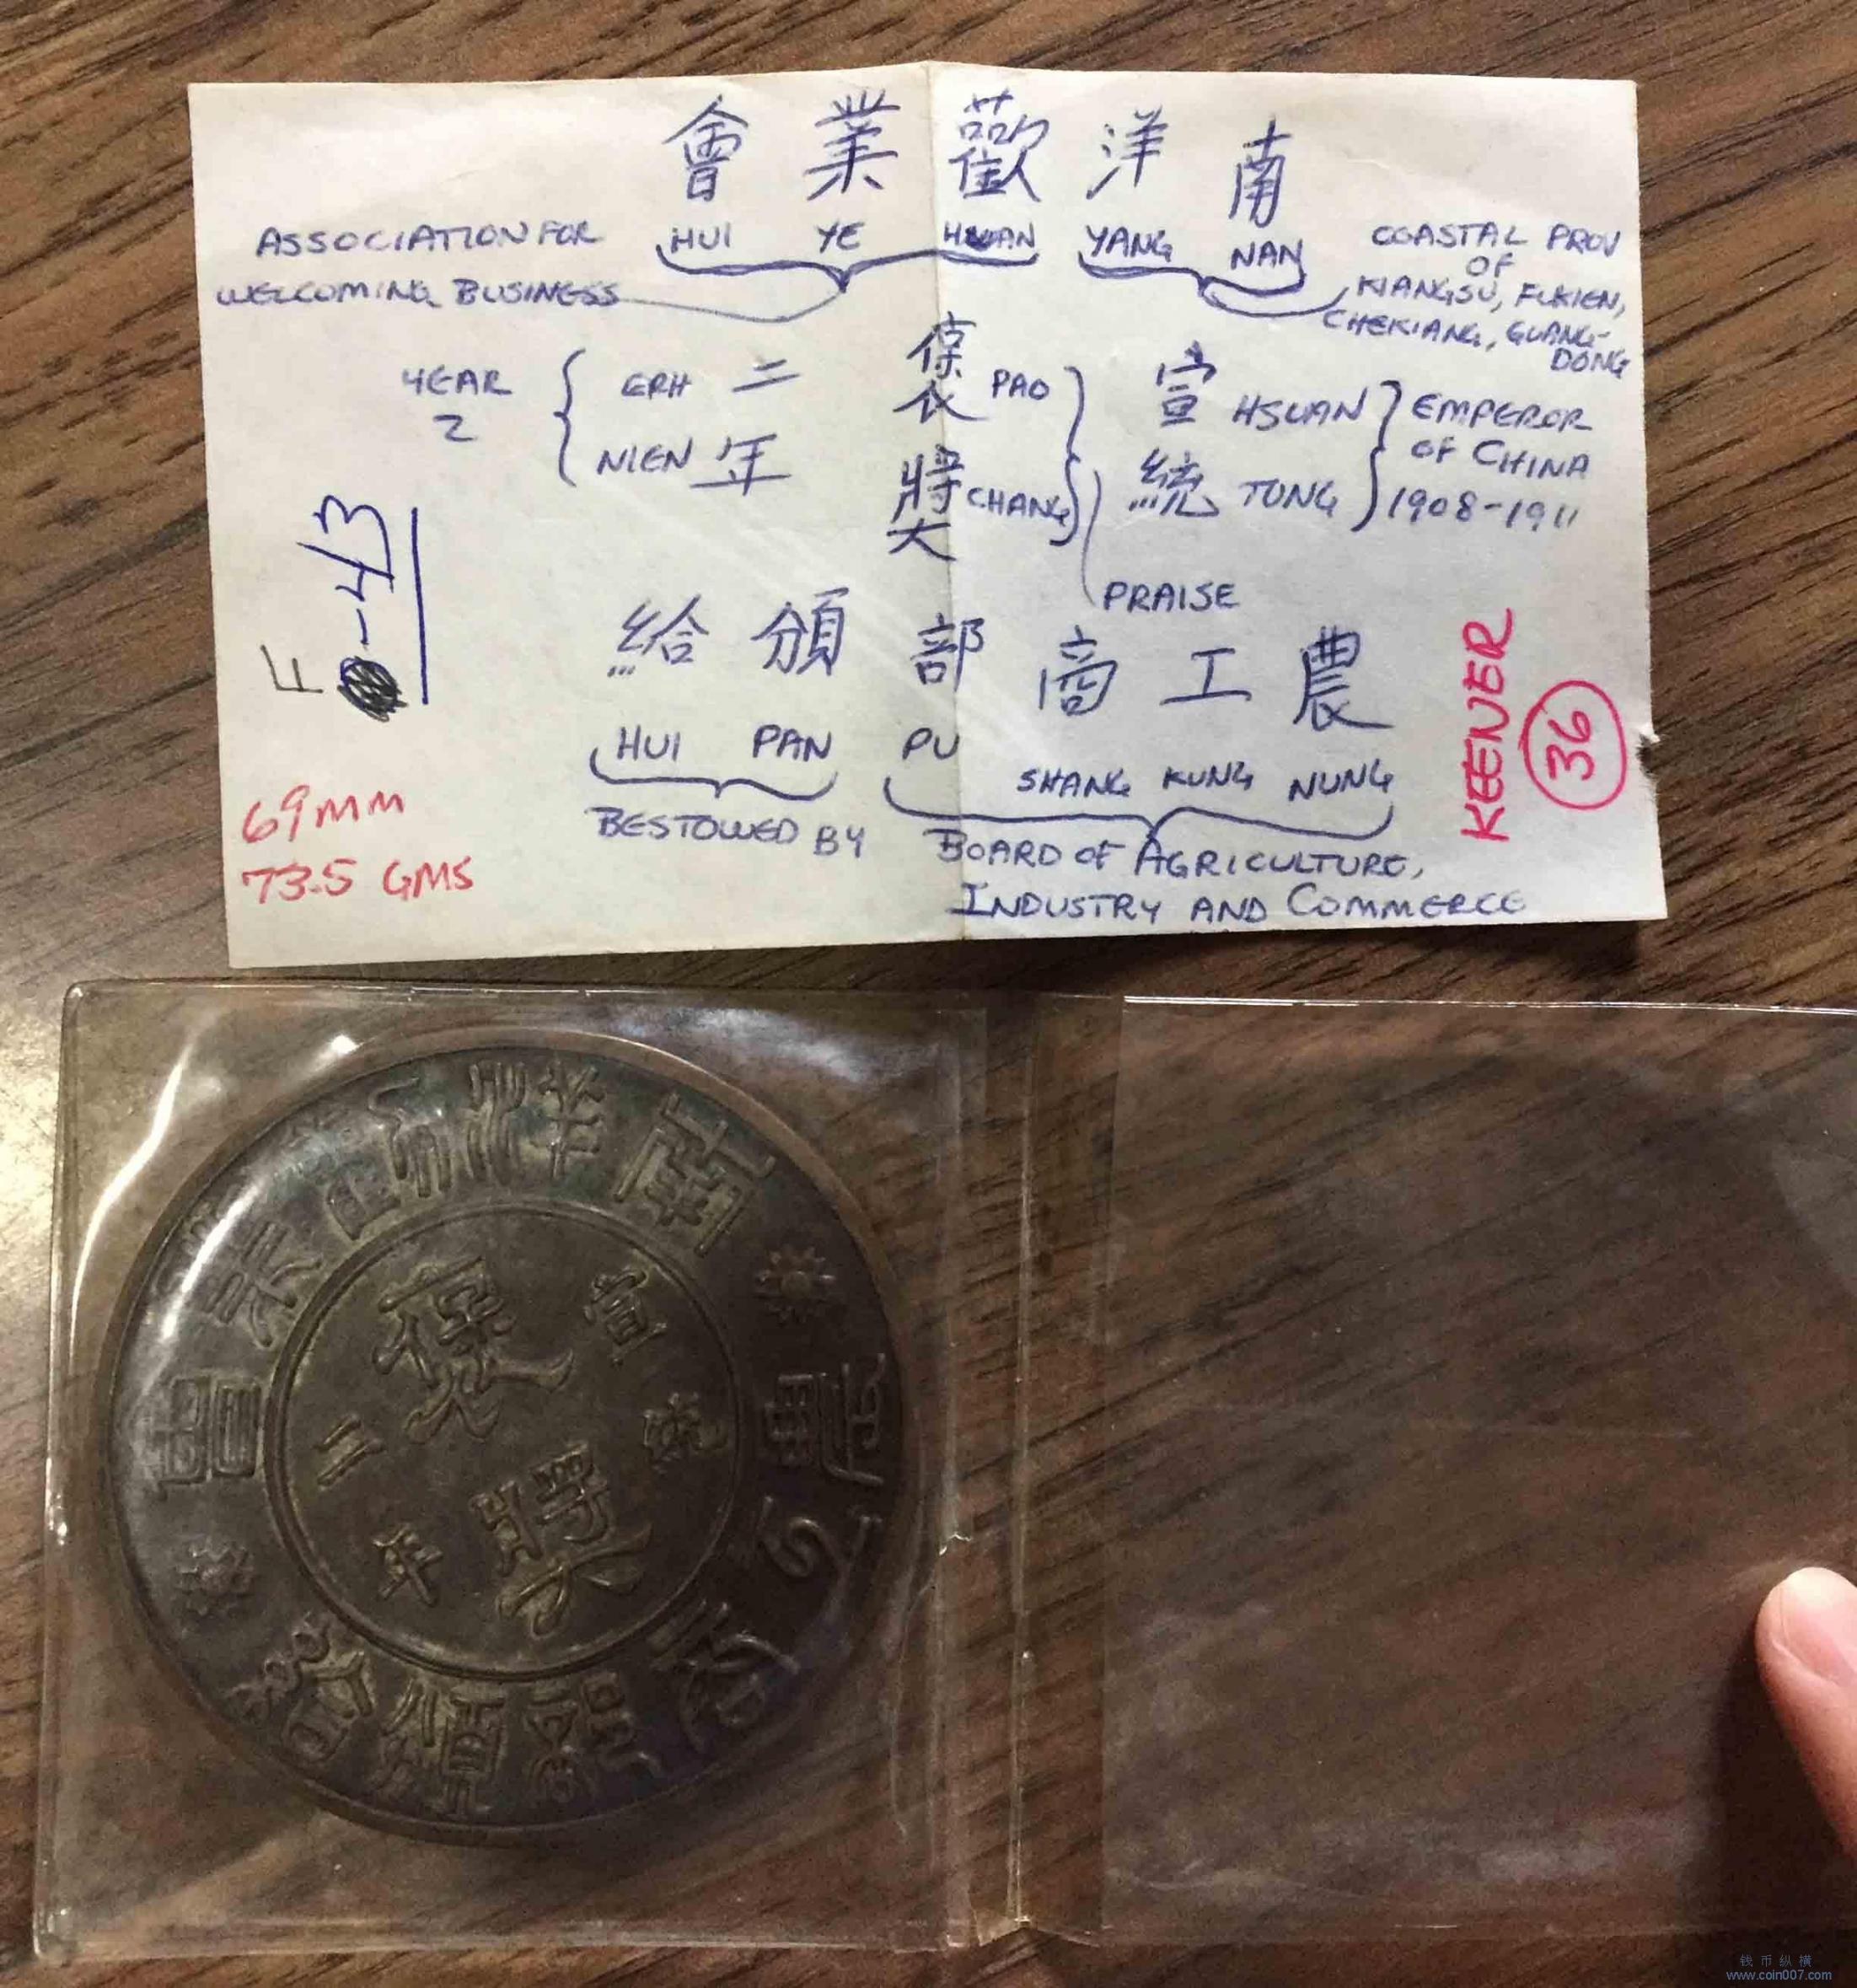 會 業 歡 洋 南
HUI YE HUAN YANG NAN
ASSOCIATION FOR
WELCOMING BUSINESS
COASTAL PROV
OF
KIANGSU, FUKIEN,
CHEKIANG, GUANG-
DONG
YEAR
2
ERH 二
NIEN 年
褒 PAO
獎 CHANG
PRAISE
宣 HSUAN
統 TUNG
EMPEROR
OF CHINA
1908-1911
給 頒 部 商 工 農
HUI PAN PU SHANG KUNG NUNG
BESTOWED BY
BOARD OF AGRICULTURE,
INDUSTRY AND COMMERCE
F -43
69MM
73.5 GMS
KEENER
36
南洋勸業會
農工商部頒給
宣統
二年
褒獎
钱币纵横
www.coin007.com